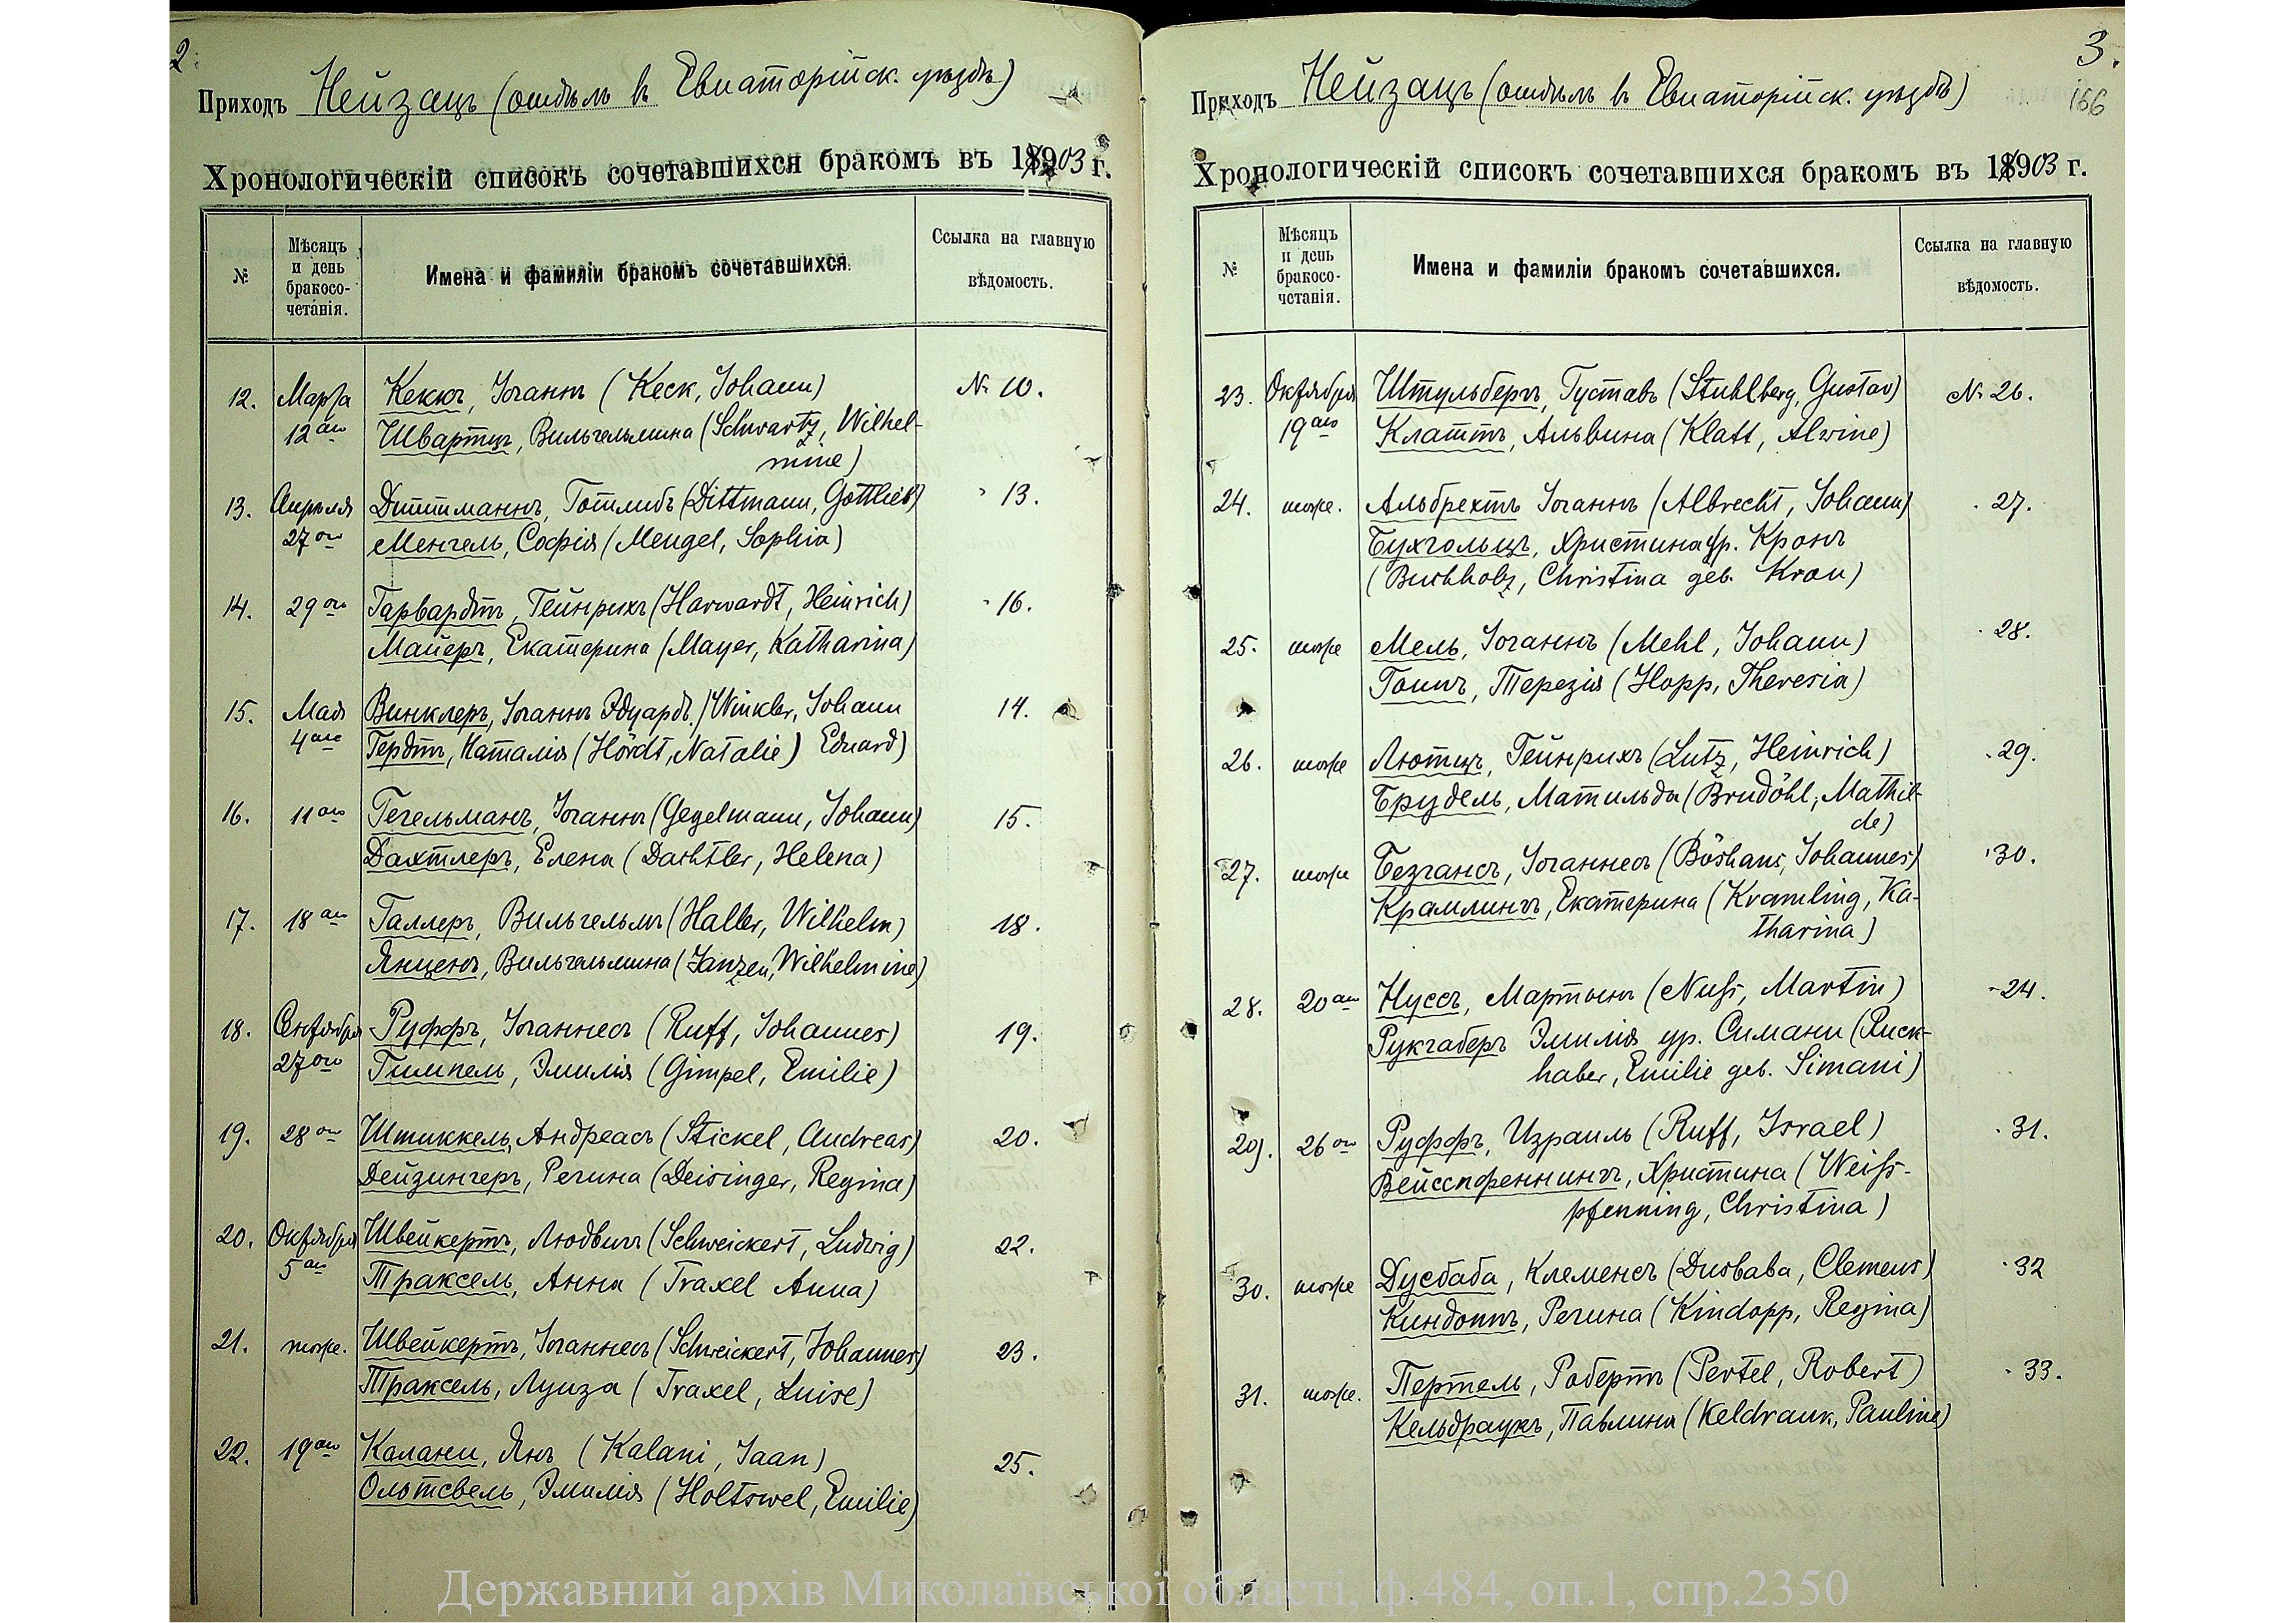 2.
Приходъ Нейзацъ (отдѣлъ въ Евпаторійск. уѣздѣ)
Хронологическій списокъ сочетавшихся бракомъ въ 1903 г.
№
Мѣсяцъ
и день
бракосо-
четанія.
Имена и фамиліи бракомъ сочетавшихся.
Ссылка на главную
вѣдомость.
12. Марта Кеккъ, Іоганнъ (Keck, Johann) № 10.
12аго Швартцъ, Вильгельмина (Schwartz, Wilhel-
mine)
13. Апрѣля Диттманнъ, Готлибъ (Dittmann, Gottlieb) 13.
27го Менгель, Софія (Mengel, Sophia)
14. 29го Гарвардтъ, Гейнрихъ (Harwardt, Heinrich) 16.
Майеръ, Екатерина (Mayer, Katharina)
15. Мая Винклеръ, Іоганнъ Эдуардъ (Winkler, Johann 14.
4аго Гердтъ, Наталія (Hördt, Natalie) Eduard)
16. 11аго Гегельманъ, Іоганнъ (Gegelmann, Johann) 15.
Дахтлеръ, Елена (Dachtler, Helena)
17. 18аго Галлеръ, Вильгельмъ (Haller, Wilhelm) 18.
Янценъ, Вильгельмина (Janzen, Wilhelmine)
18. Сентября Руффъ, Іоганнесъ (Ruff, Johannes) 19.
27го Гимпель, Эмилія (Gimpel, Emilie)
19. 28го Штиккель, Андреасъ (Stickel, Andreas) 20.
Дейзингеръ, Регина (Deisinger, Regina)
20. Октября Швейкертъ, Людвигъ (Schweickert, Ludwig) 22.
5аго Траксель, Анна (Traxel Anna)
21. тоже. Швейкертъ, Іоганнесъ (Schweickert, Johannes) 23.
Траксель, Луиза (Traxel, Luise)
22. 19аго Калани, Янъ (Kalani, Jaan) 25.
Ольтсвель, Эмилія (Holtswel, Emilie)
3.
166
Приходъ Нейзацъ (отдѣлъ въ Евпаторійск. уѣздѣ)
Хронологическій списокъ сочетавшихся бракомъ въ 1903 г.
№
Мѣсяцъ
и день
бракосо-
четанія.
Имена и фамиліи бракомъ сочетавшихся.
Ссылка на главную
вѣдомость.
23. Октября Штульбергъ, Густавъ (Stuhlberg, Gustav) № 26.
19аго Клаттъ, Альвина (Klatt, Alwine)
24. тоже. Альбрехтъ Іоганнъ (Albrecht, Johann) 27.
Бухгольцъ, Христина ур. Кронъ
(Buchholz, Christina geb. Kron)
25. тоже Мель, Іоганнъ (Mehl, Johann) 28.
Гоппъ, Терезія (Hopp, Theresia)
26. тоже Лютцъ, Гейнрихъ (Lutz, Heinrich) 29.
Брудель, Матильда (Brudöhl, Mathil-
de)
27. тоже Безгансъ, Іоганнесъ (Böshans, Johannes) 30.
Крамлингъ, Екатерина (Kramling, Ka-
tharina)
28. 20аго Нуссъ, Мартынъ (Nuß, Martin) 24.
Рукгаберъ Эмилія ур. Симани (Ruck-
haber, Emilie geb. Simani)
29. 26го Руффъ, Израиль (Ruff, Israel) 31.
Вейсспфеннингъ, Христина (Weiß-
pfenning, Christina)
30. тоже Дусбаба, Клеменсъ (Dusbaba, Clemens) 32
Киндоппъ, Регина (Kindopp, Regina)
31. тоже. Пертель, Робертъ (Pertel, Robert) 33.
Кельдраукъ, Павлина (Keldrauk, Pauline)
Державний архів Миколаївської області, ф.484, оп.1, спр.2350